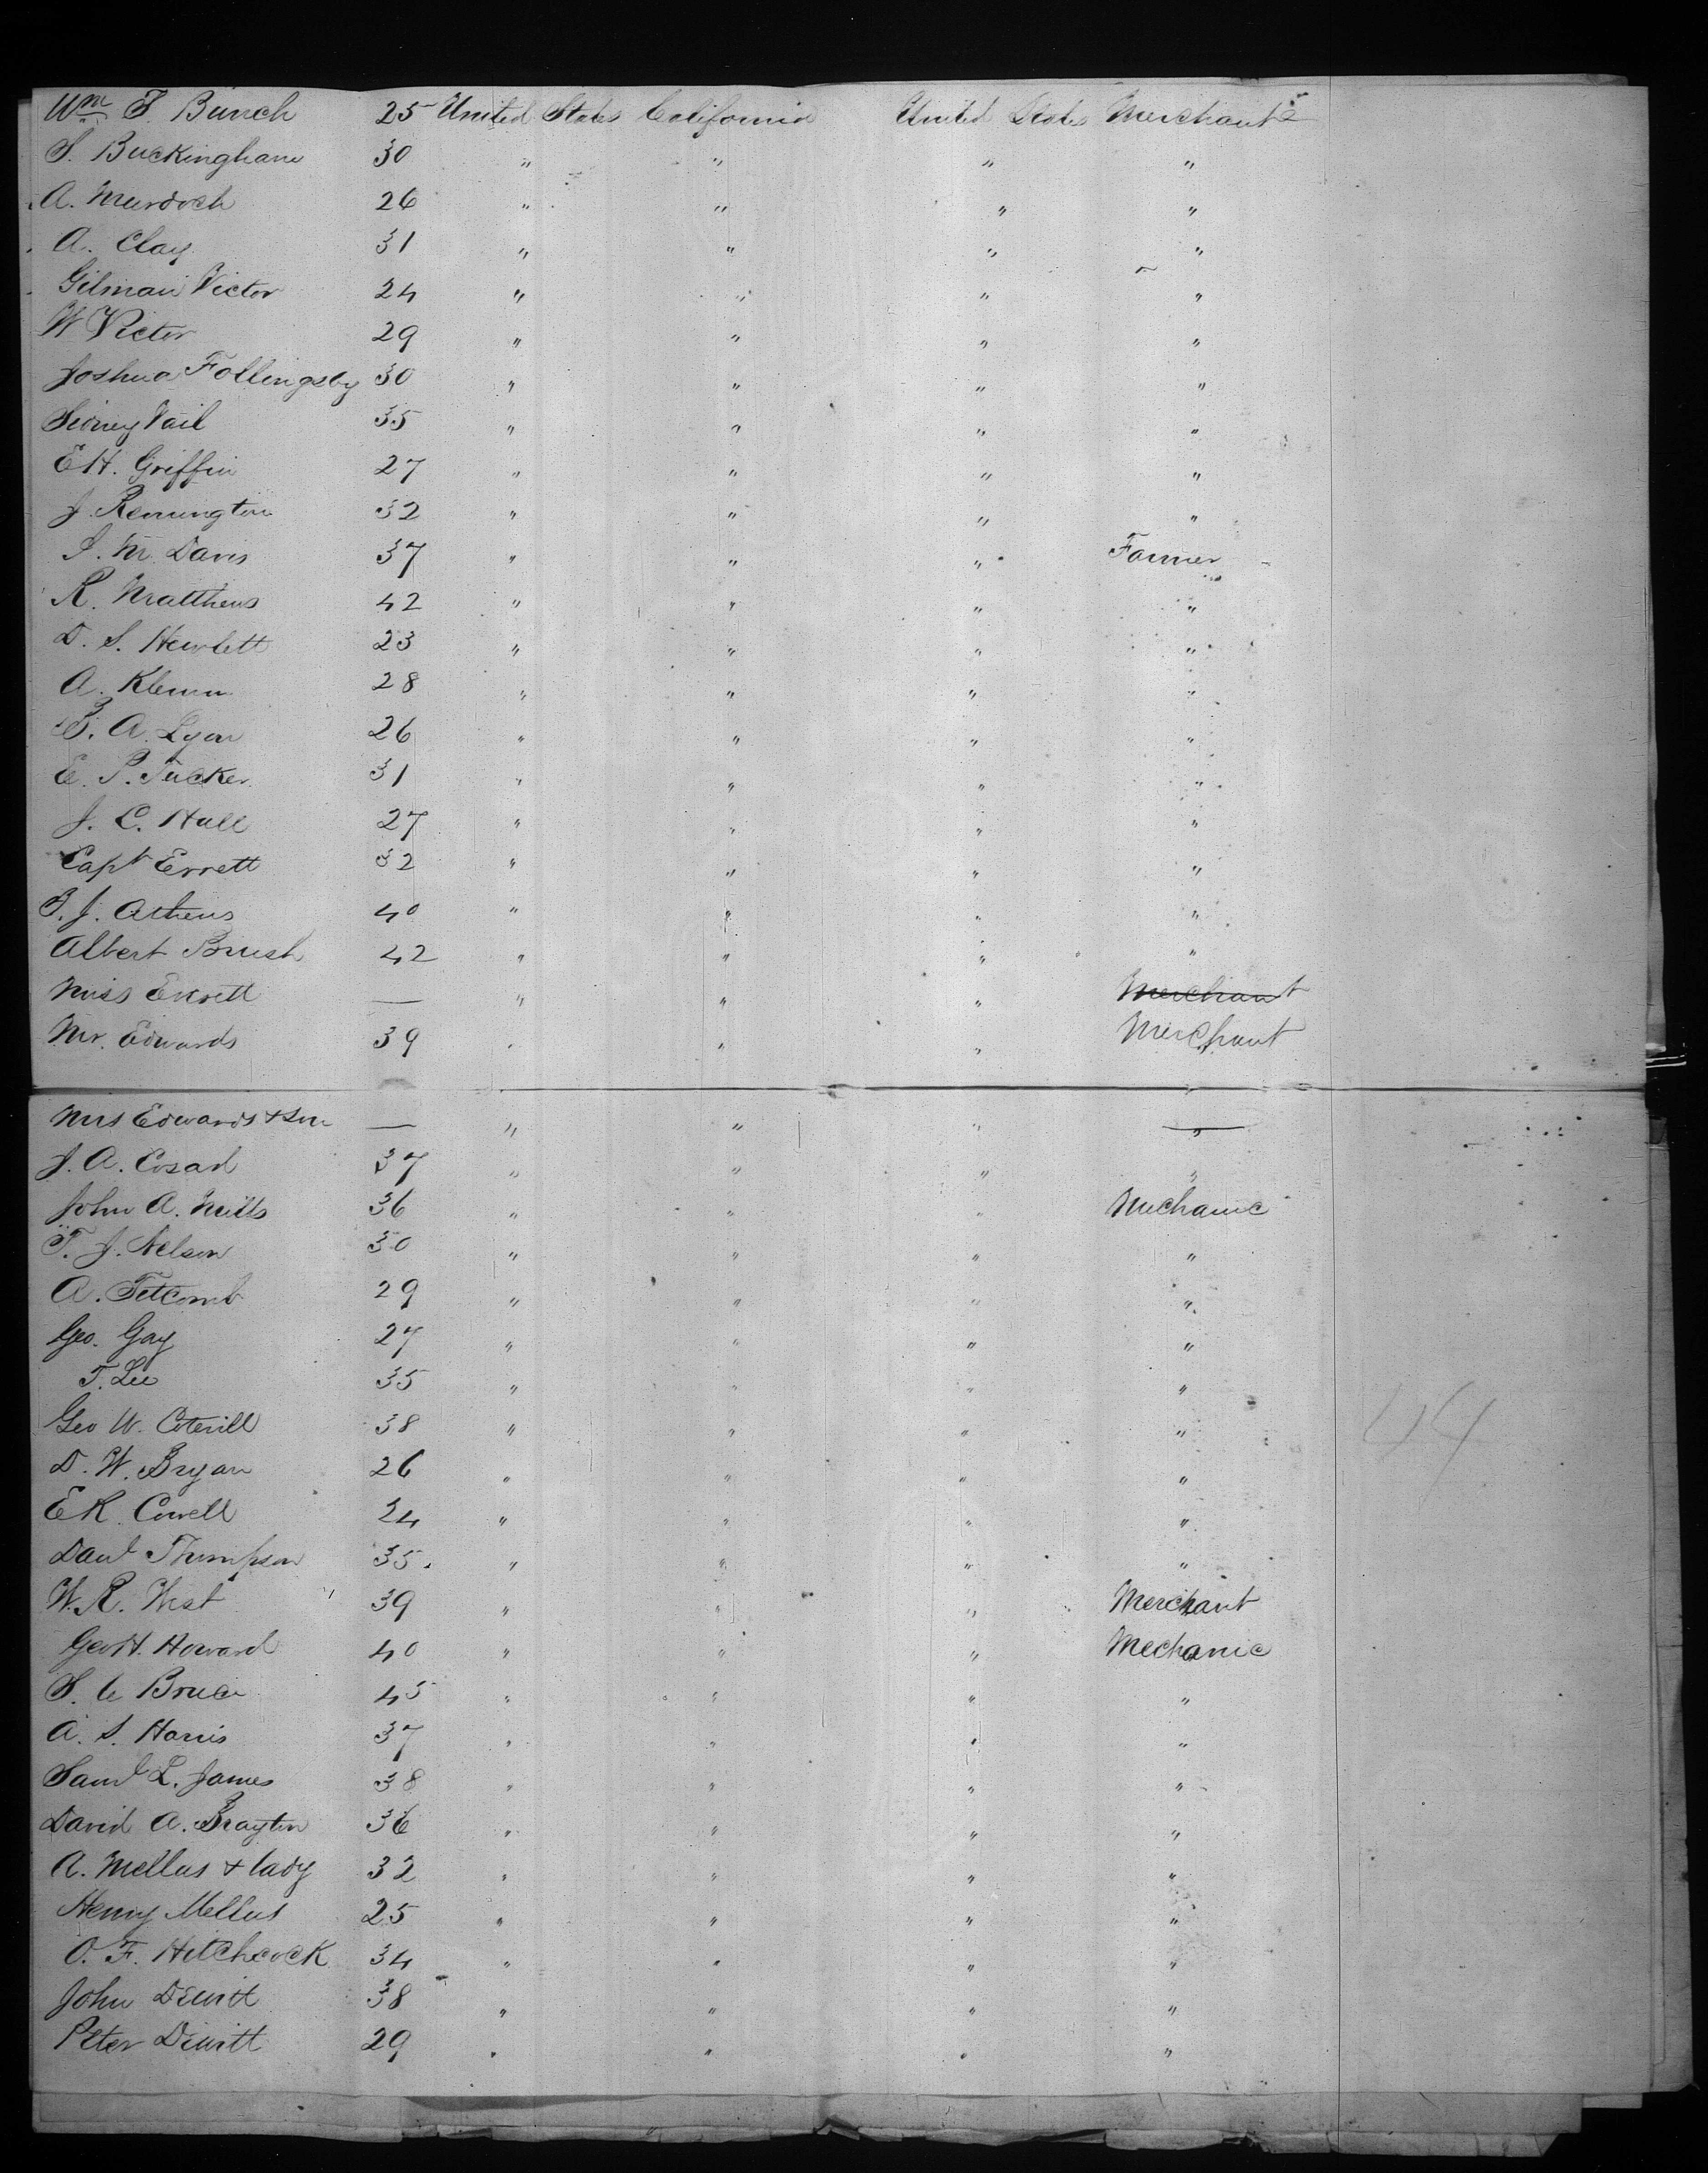 Wm F Bunch 25 United States California United States Merchant
S. Buckingham 30 " " " "
A. Murdoch 26 " " " "
A. Clay 31 " " " "
Gilman Victor 24 " " " "
W Victor 29 " " " "
Joshua Follingsby 30 " " " "
Sidney Vail 35 " " " "
E H. Griffin 27 " " " "
J. Remington 32 " " " "
S. M. Davis 37 " " " Farmer
R. Matthews 42 " " " "
D. S. Hewlett 23 " " " "
A. Klemm 28 " " " "
B. A. Lyon 26 " " " "
E. P. Tucker 31 " " " "
J. C. Hall 27 " " " "
Capt Errett 32 " " " "
T. J. Athens 40 " " " "
Albert Brush 42 " " " "
Miss Everett — " " " Merchant
Mr. Edwards 39 " " " Merchant
Mrs Edwards & Son — " " " "
J. A. Cosad 37 " " " "
John A. Mills 36 " " " Mechanic
T. J. Nelson 30 " " " "
A. Titcomb 29 " " " "
Geo. Gay 27 " " " "
T. Lee 35 " " " "
Geo W. Coterill 38 " " " "
D. W. Bryan 26 " " " "
E R. Cowell 24 " " " "
Danl Thompson 35 " " " "
W. R. West 39 " " " Merchant
Geo H. Howard 40 " " " Mechanic
S. C Bruce 45 " " " "
A. S. Harris 37 " " " "
Saml L. James 38 " " " "
David A. Brayton 36 " " " "
A. Mellus & lady 32 " " " "
Henry Mellus 25 " " " "
O. F. Hitchcock 34 " " " "
John Dewitt 38 " " " "
Peter Dewitt 29 " " " "
44